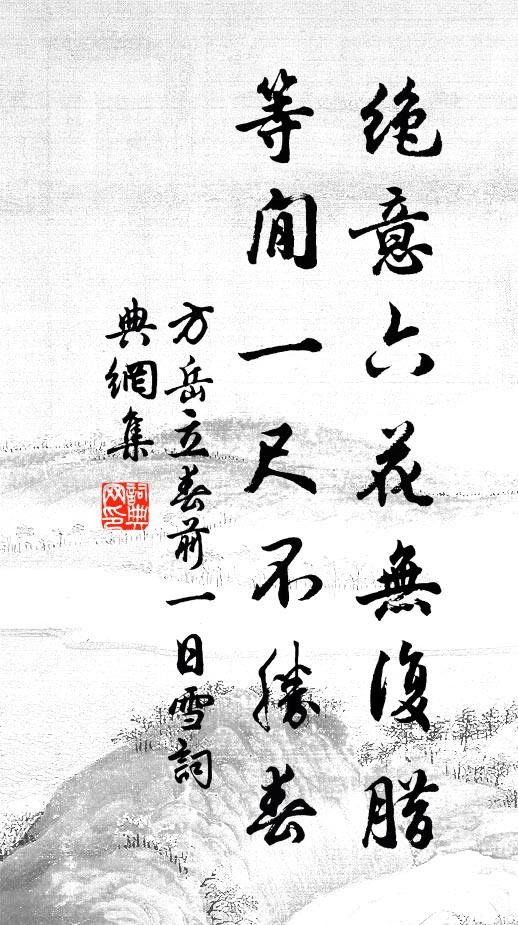 絶意六花無復腊
等閒一尺不勝春
方岳立春前一日雪詞
典網集
詞典网印